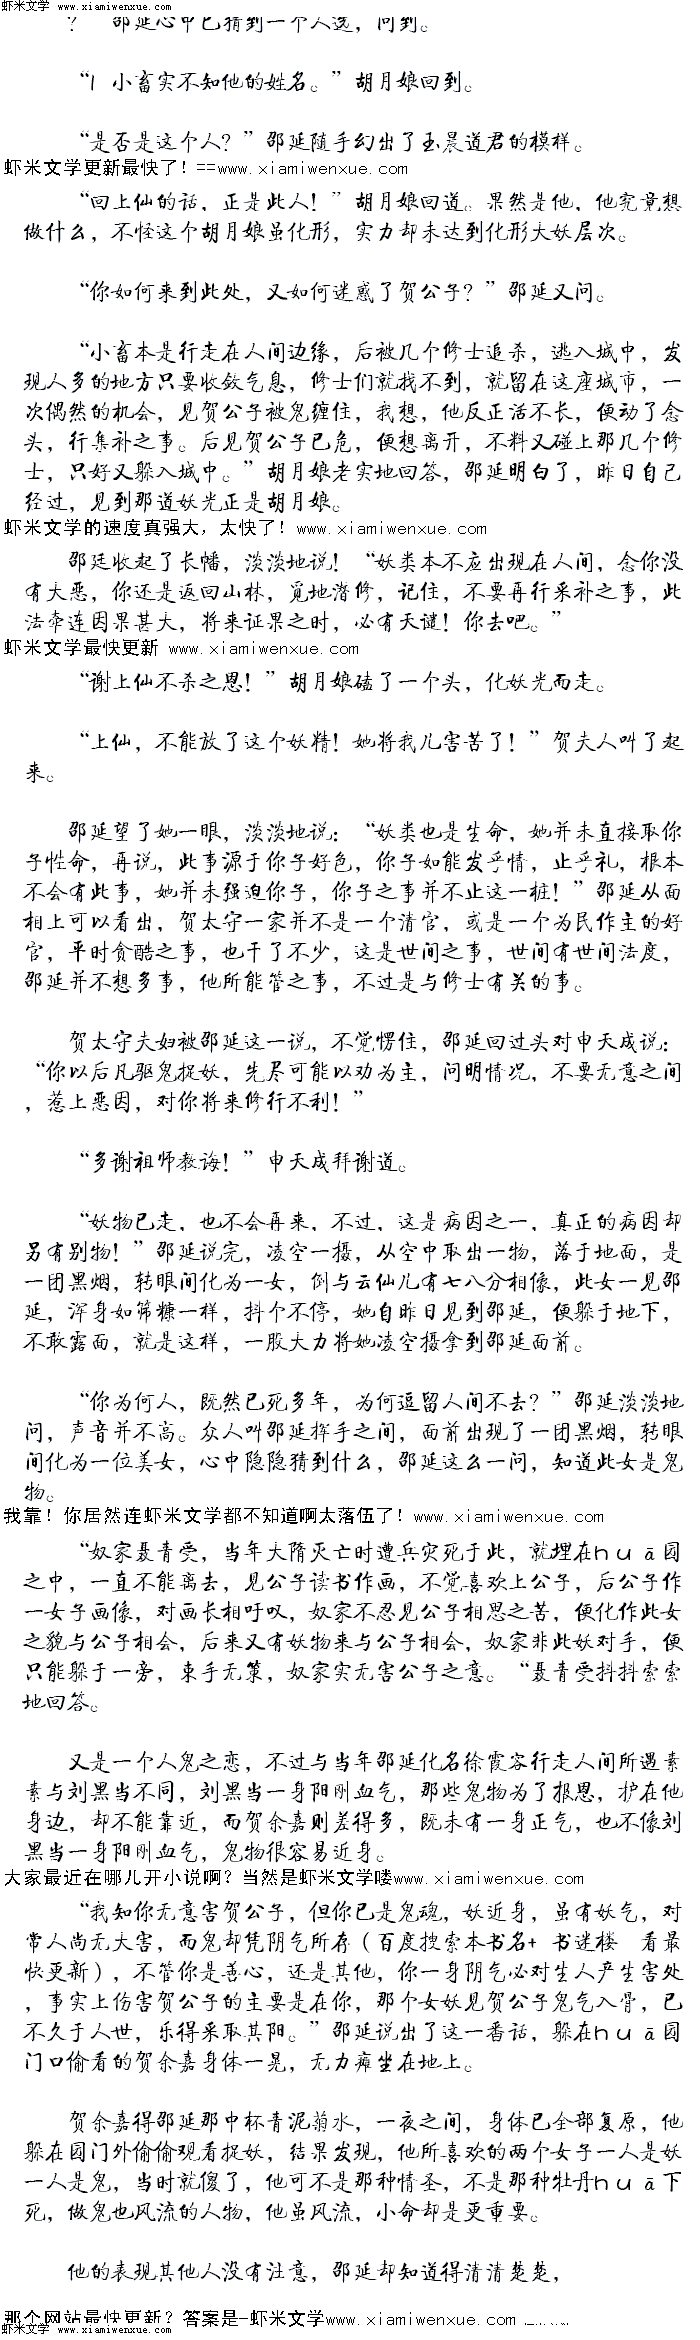 虾米文学 www.xiamiwenxue.com
？ 邵延心中已猜到一个人选，问到。
小畜实不知他的姓名。”胡月娘回到。
“是否是这个人？”邵延随手幻出了玉晨道君的模样。
虾米文学更新最快了！==www.xiamiwenxue.com
“回上仙的话，正是此人！”胡月娘回道。果然是他，他究竟想
做什么，不怪这个胡月娘虽化形，实力却未达到化形大妖层次。
“你如何来到此处，又如何迷惑了贺公子？”邵延又问。
“小畜本是行走在人间边缘，后被几个修士追杀，逃入城中，发
现人多的地方只要收敛气息，修士们就找不到，就留在这座城市，一
次偶然的机会，见贺公子被鬼缠住，我想，他反正活不长，便动了念
头，行集补之事。后见贺公子已危，便想离开，不料又碰上那几个修
士，只好又躲入城中。”胡月娘老实地回答，邵延明白了，昨日自己
经过，见到那道妖光正是胡月娘。
虾米文学的速度真强大，太快了！www.xiamiwenxue.com
邵廷收起了长幡，淡淡地说！“妖类本不应出现在人间，念你没
有大恶，你还是返回山林，觅地潜修，记住，不要再行采补之事，此
法牵连因果甚大，将来证果之时，必有天谴！你去吧。”
虾米文学最快更新 www.xiamiwenxue.com
“谢上仙不杀之恩！”胡月娘磕了一个头，化妖光而走。
“上仙，不能放了这个妖精！她将我儿害苦了！”贺夫人叫了起
来。
邵延望了她一眼，淡淡地说：“妖类也是生命，她并未直接取你
子性命，再说，此事源于你子好色，你子如能发乎情，止乎礼，根本
不会有此事，她并未强迫你子，你子之事并不止这一桩！”邵延从面
相上可以看出，贺太守一家并不是一个清官，或是一个为民作主的好
官，平时贪酷之事，也干了不少，这是世间之事，世间有世间法度，
邵延并不想多事，他所能管之事，不过是与修士有关的事。
贺太守夫妇被邵延这一说，不觉愣住，邵延回过头对申天成说：
“你以后凡驱鬼捉妖，先尽可能以劝为主，问明情况，不要无意之间
，惹上恶因，对你将来修行不利！”
“多谢祖师教诲！”申天成拜谢道。
“妖物已走，也不会再来，不过，这是病因之一，真正的病因却
另有别物！”邵延说完，凌空一摄，从空中取出一物，落于地面，是
一团黑烟，转眼间化为一女，倒与云仙儿有七八分相像，此女一见邵
延，浑身如筛糠一样，抖个不停，她自昨日见到邵延，便躲于地下，
不敢露面，就是这样，一股大力将她凌空摄拿到邵延面前。
“你为何人，既然已死多年，为何逗留人间不去？”邵延淡淡地
问，声音并不高。众人叫邵延挥手之间，面前出现了一团黑烟，转眼
间化为一位美女，心中隐隐猜到什么，邵延这么一问，知道此女是鬼
物。
我靠！你居然连虾米文学都不知道啊太落伍了！www.xiamiwenxue.com
“奴家聂青受，当年大隋灭亡时遭兵灾死于此，就埋在huā园
之中，一直不能离去，见公子读书作画，不觉喜欢上公子，后公子作
一女子画像，对画长相吁叹，奴家不忍见公子相思之苦，便化作此女
之貌与公子相会，后来又有妖物来与公子相会，奴家非此妖对手，便
只能躲于一旁，束手无策，奴家实无害公子之意。“聂青受抖抖索索
地回答。
又是一个人鬼之恋，不过与当年邵延化名徐霞客行走人间所遇素
素与刘黑当不同，刘黑当一身阳刚血气，那些鬼物为了报恩，护在他
身边，却不能靠近，而贺余嘉则差得多，既未有一身正气，也不像刘
黑当一身阳刚血气，鬼物很容易近身。
大家最近在哪儿开小说啊？当然是虾米文学喽www.xiamiwenxue.com
“我知你无意害贺公子，但你已是鬼魂，妖近身，虽有妖气，对
常人尚无大害，而鬼却凭阴气所存（百度搜索本书名+ 书迷楼 看最
快更新），不管你是善心，还是其他，你一身阴气必对生人产生害处
，事实上伤害贺公子的主要是在你，那个女妖见贺公子鬼气入骨，已
不久于人世，乐得采取其阳。”邵延说出了这一番话，躲在huā园
门口偷看的贺余嘉身体一晃，无力瘫坐在地上。
贺余嘉得邵延那中杯青泥菊水，一夜之间，身体已全部复原，他
躲在园门外偷偷观看捉妖，结果发现，他所喜欢的两个女子一人是妖
一人是鬼，当时就傻了，他可不是那种情圣，不是那种牡丹huā下
死，做鬼也风流的人物，他虽风流，小命却是更重要。
他的表现其他人没有注意，邵延却知道得清清楚楚，
那个网站最快更新？答案是-虾米文学www.xiamiwenxue.com
虾米文学 www.xiamiwenxue.com